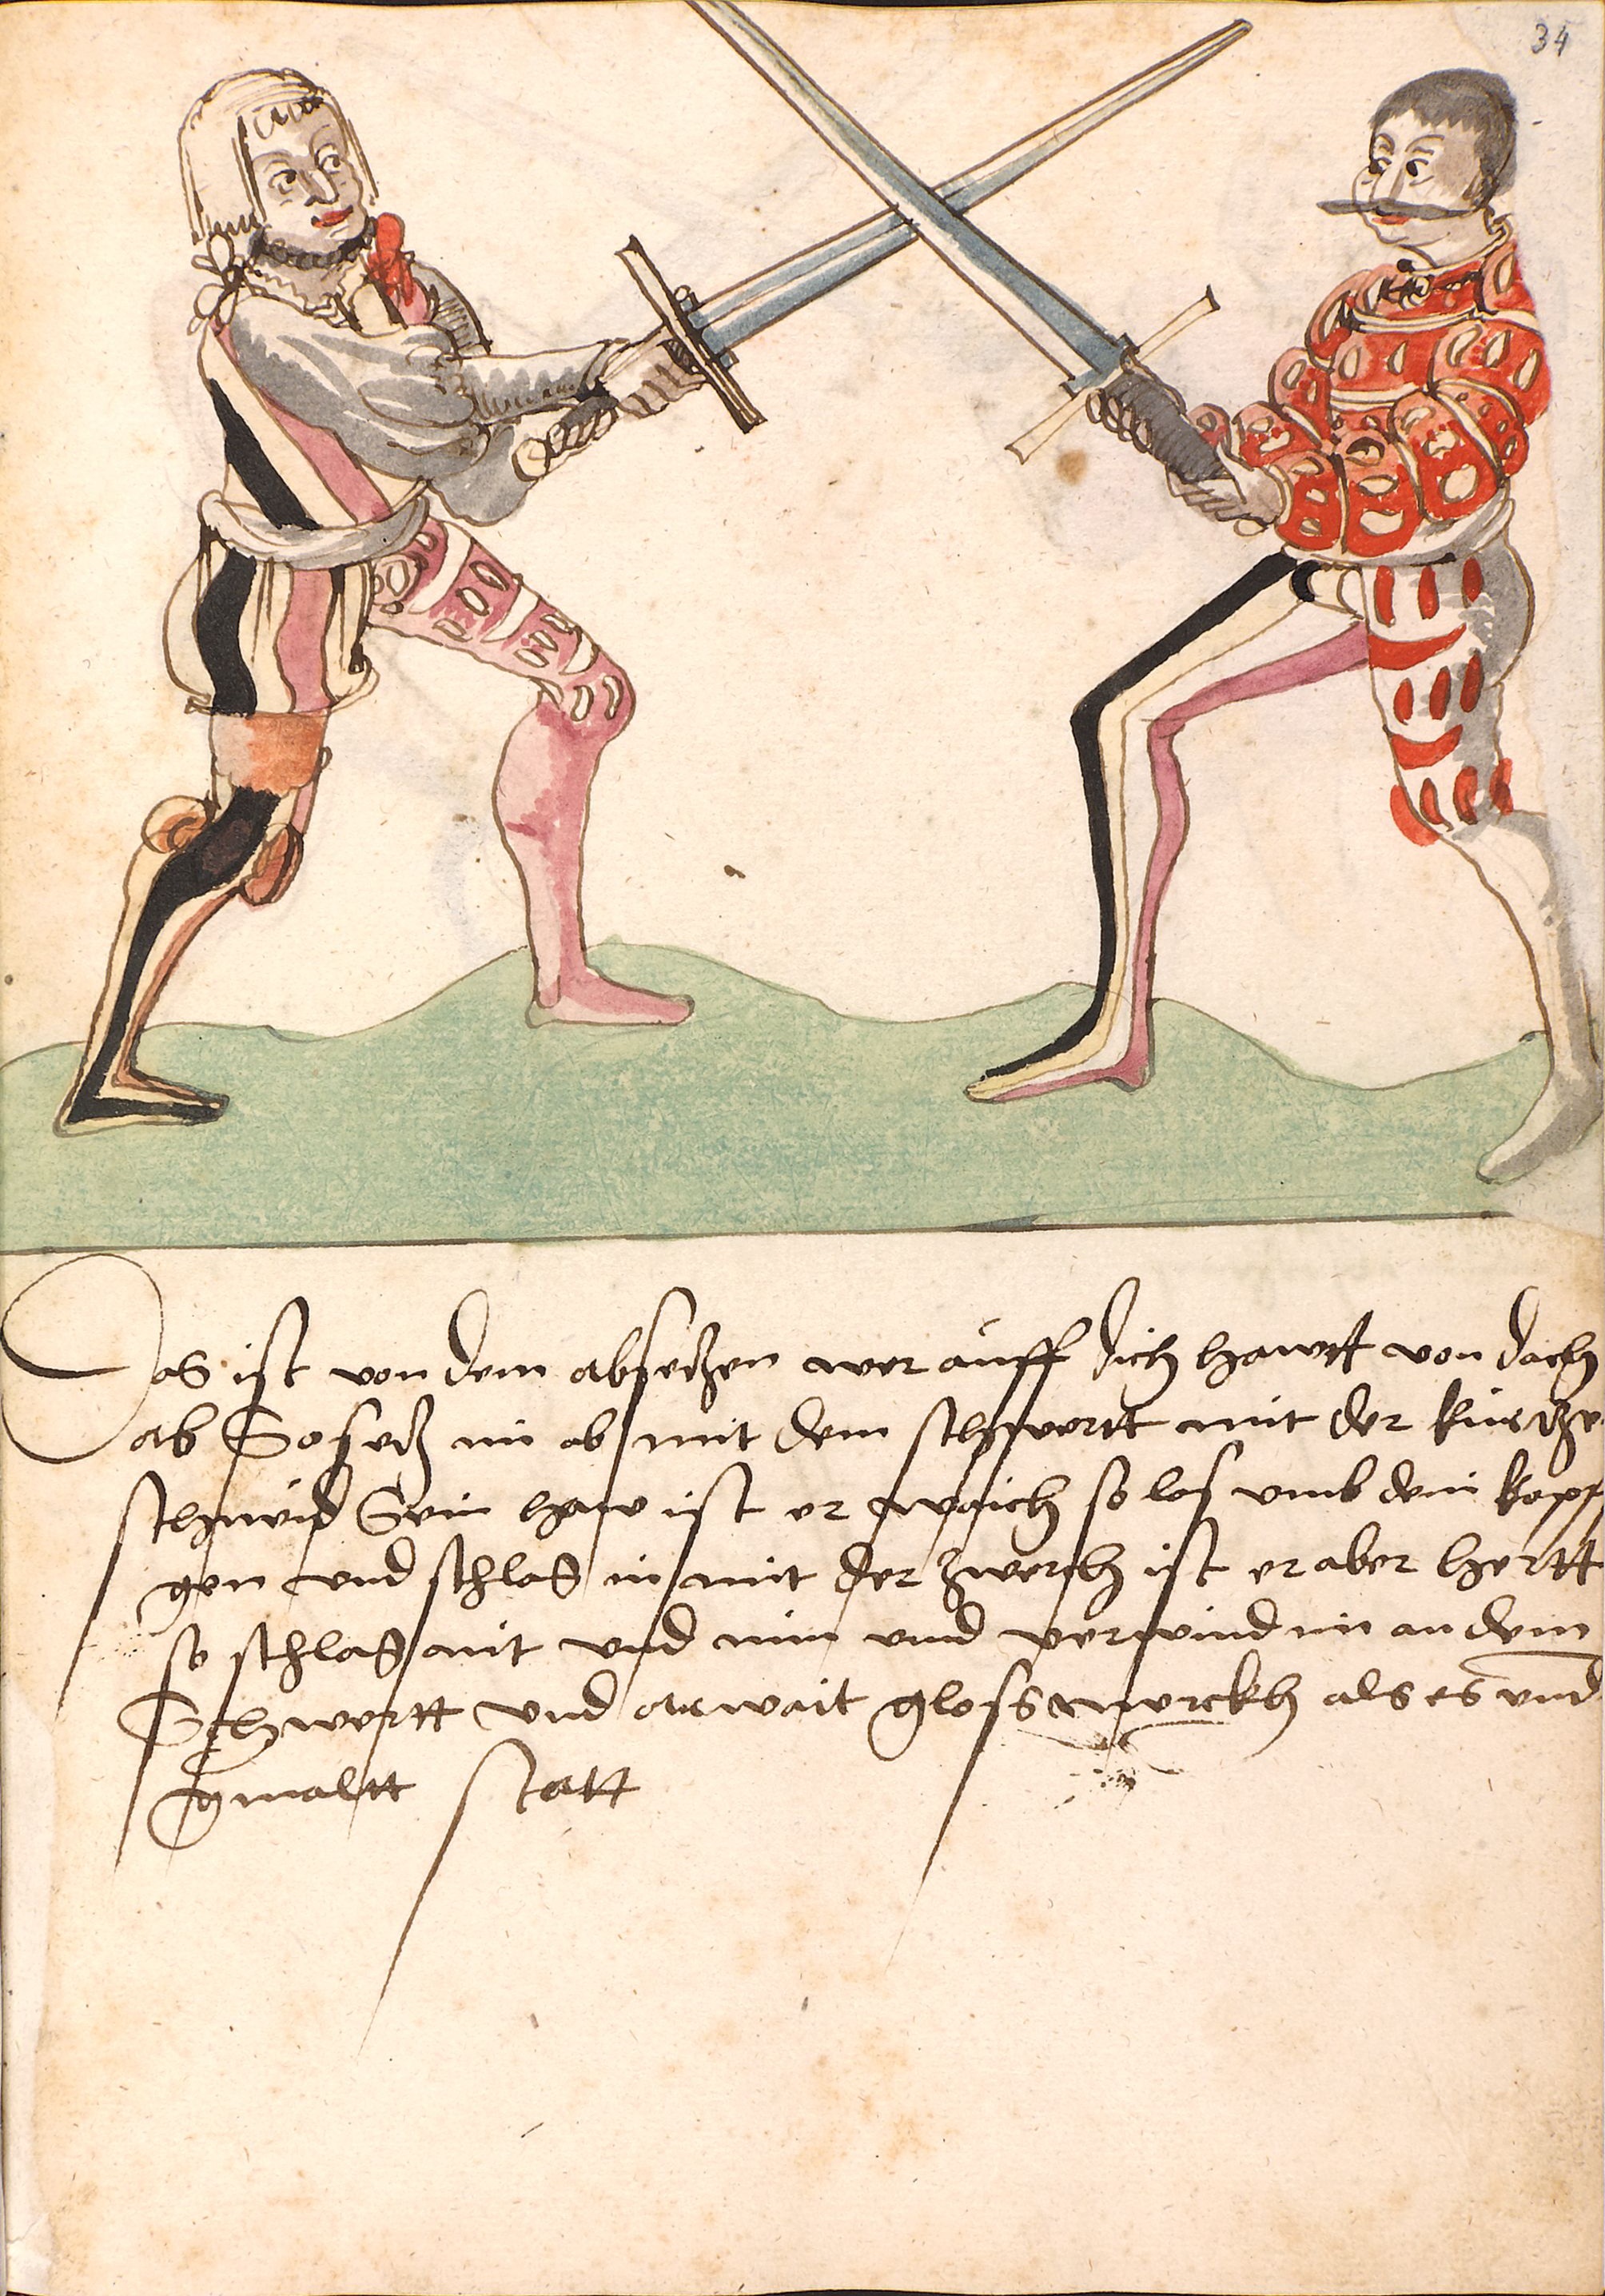 34
Das ist von dem absetzen wer auff dich hawtt von dach
ab So setz im ab mit dem schwertt mit der kurtze
schneid Sein haw ist er waich so las vmb dein kopff
gen vnd schlag in mit der zwerch ist er aber hertt
so schlag mit vnd nim vnnd verwind im an dem
Schwertt vnd arwait gloss merckh als es vnnd
gmaltt statt